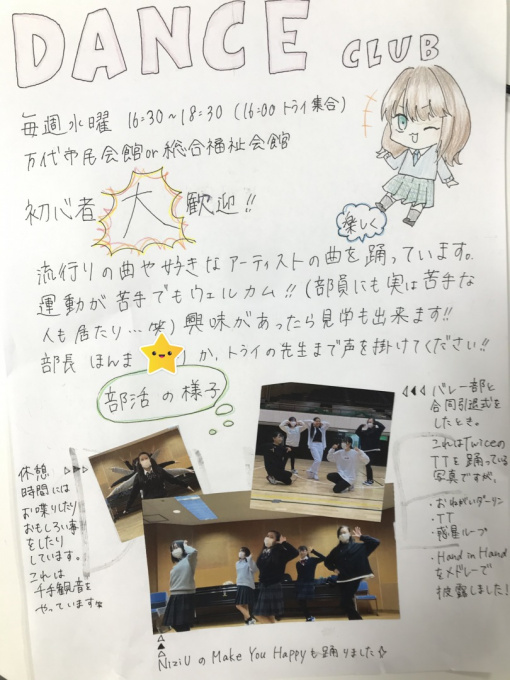 DANCE CLUB
毎週水曜 16:30~18:30 (16:00 トライ集合)
万代市民会館or総合福祉会館
初心者大歓迎!!
楽しく
流行りの曲や好きなアーティストの曲を踊っています。
運動が苦手でもウェルカム!!(部員にも実は苦手な
人も居たり…笑)興味があったら見学も出来ます!!
部長 ほんま
)か、トライの先生まで声を掛けてください!!
部活の様子
バレー部と
合同引退式を
したとき。
これはTwiceの
TTを踊っている
写真ですが、
・おねがいダーリン
・TT
・惑星ループ
・Hand in Hand
をメドレーで
披露しました!
休憩
時間には
お喋りしたり
おもしろい事
をしたり
しています。
これは
千手観音を
やっています
NiziU の Make You Happy も踊りました☆